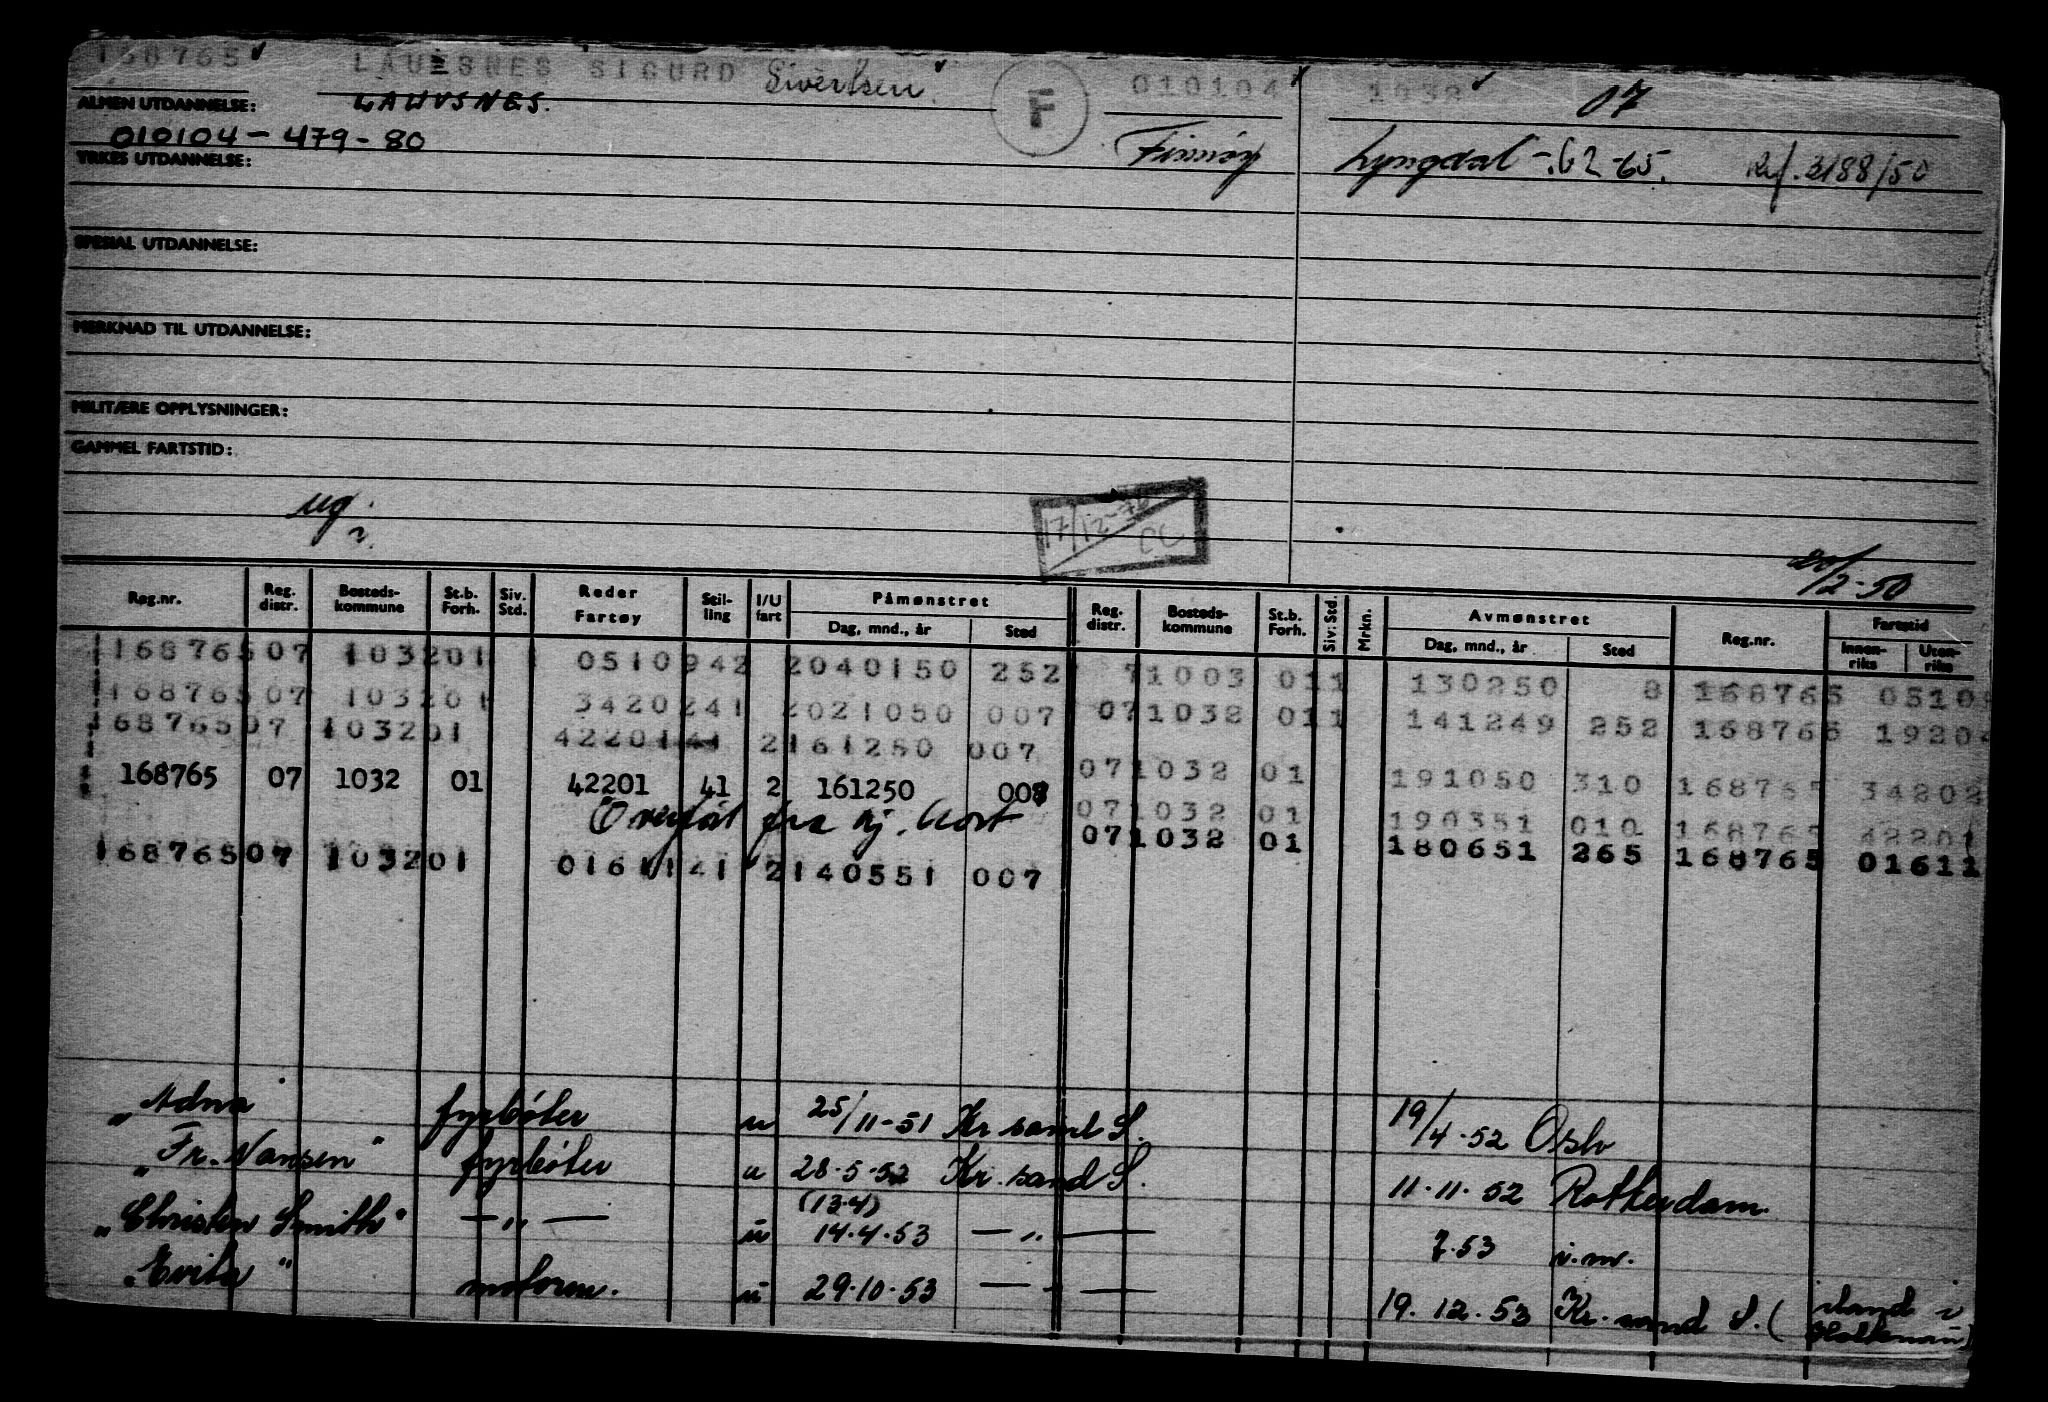 168765 LAUESNES SIGURD Sivertsen F 010104 1032 07
ALMEN UTDANNELSE: LAUVSNES.
010104-479-80 Lyngdal -.62-65. Ref. 3188/50
YRKES UTDANNELSE:
SPESIAL UTDANNELSE:
MERKNAD TIL UTDANNELSE:
MILITÆRE OPPLYSNINGER:
GAMMEL FARTSTID:
ug.
17/12-74
20/2-50
Reg.nr. Reg. distr. Bosteds- kommune St.b. Forh. Siv. Std. Reder Fartøy Stil- ling I/U fart Påmønstret Dag, mnd., år Sted Reg. distr. Bosteds- kommune St.b. Forh. Siv. Std. Mrkn. Avmønstret Dag, mnd., år Sted Reg.nr. Fartstid Innen- riks Uten- riks
168765 07 1032 01 1 0510 942 2 040150 252 7 1003 01 1 130250 8 168765 0510
168765 07 1032 01 3420 241 2 021050 007 07 1032 01 1 141249 252 168765 19204
168765 07 1032 01 42201 41 2 161250 007
07 1032 01 191050 310 168765 34202
168765 07 1032 01 42201 41 2 161250 008
07 1032 01 190351 010 168765 42201
Overført fra nj. kort
07 1032 01 180651 265 168765 01611
168765 07 1032 01 01611 41 2 140551 007
„ Adna fyrbøter u 25/11-51 Kr. sand S. 19/4-52 Oslo
„ Fr. Nansen " fyrbøter u 28.5.52 Kr. sand S. 11.11.52 Rotterdam.
(13.4)
„ Christen Smith " — „ — u 14.4.53 — „ — 7.53 i.m.
„ Evita " motorm. u 29.10.53 — " — 19.12.53 Kr. sand S. (